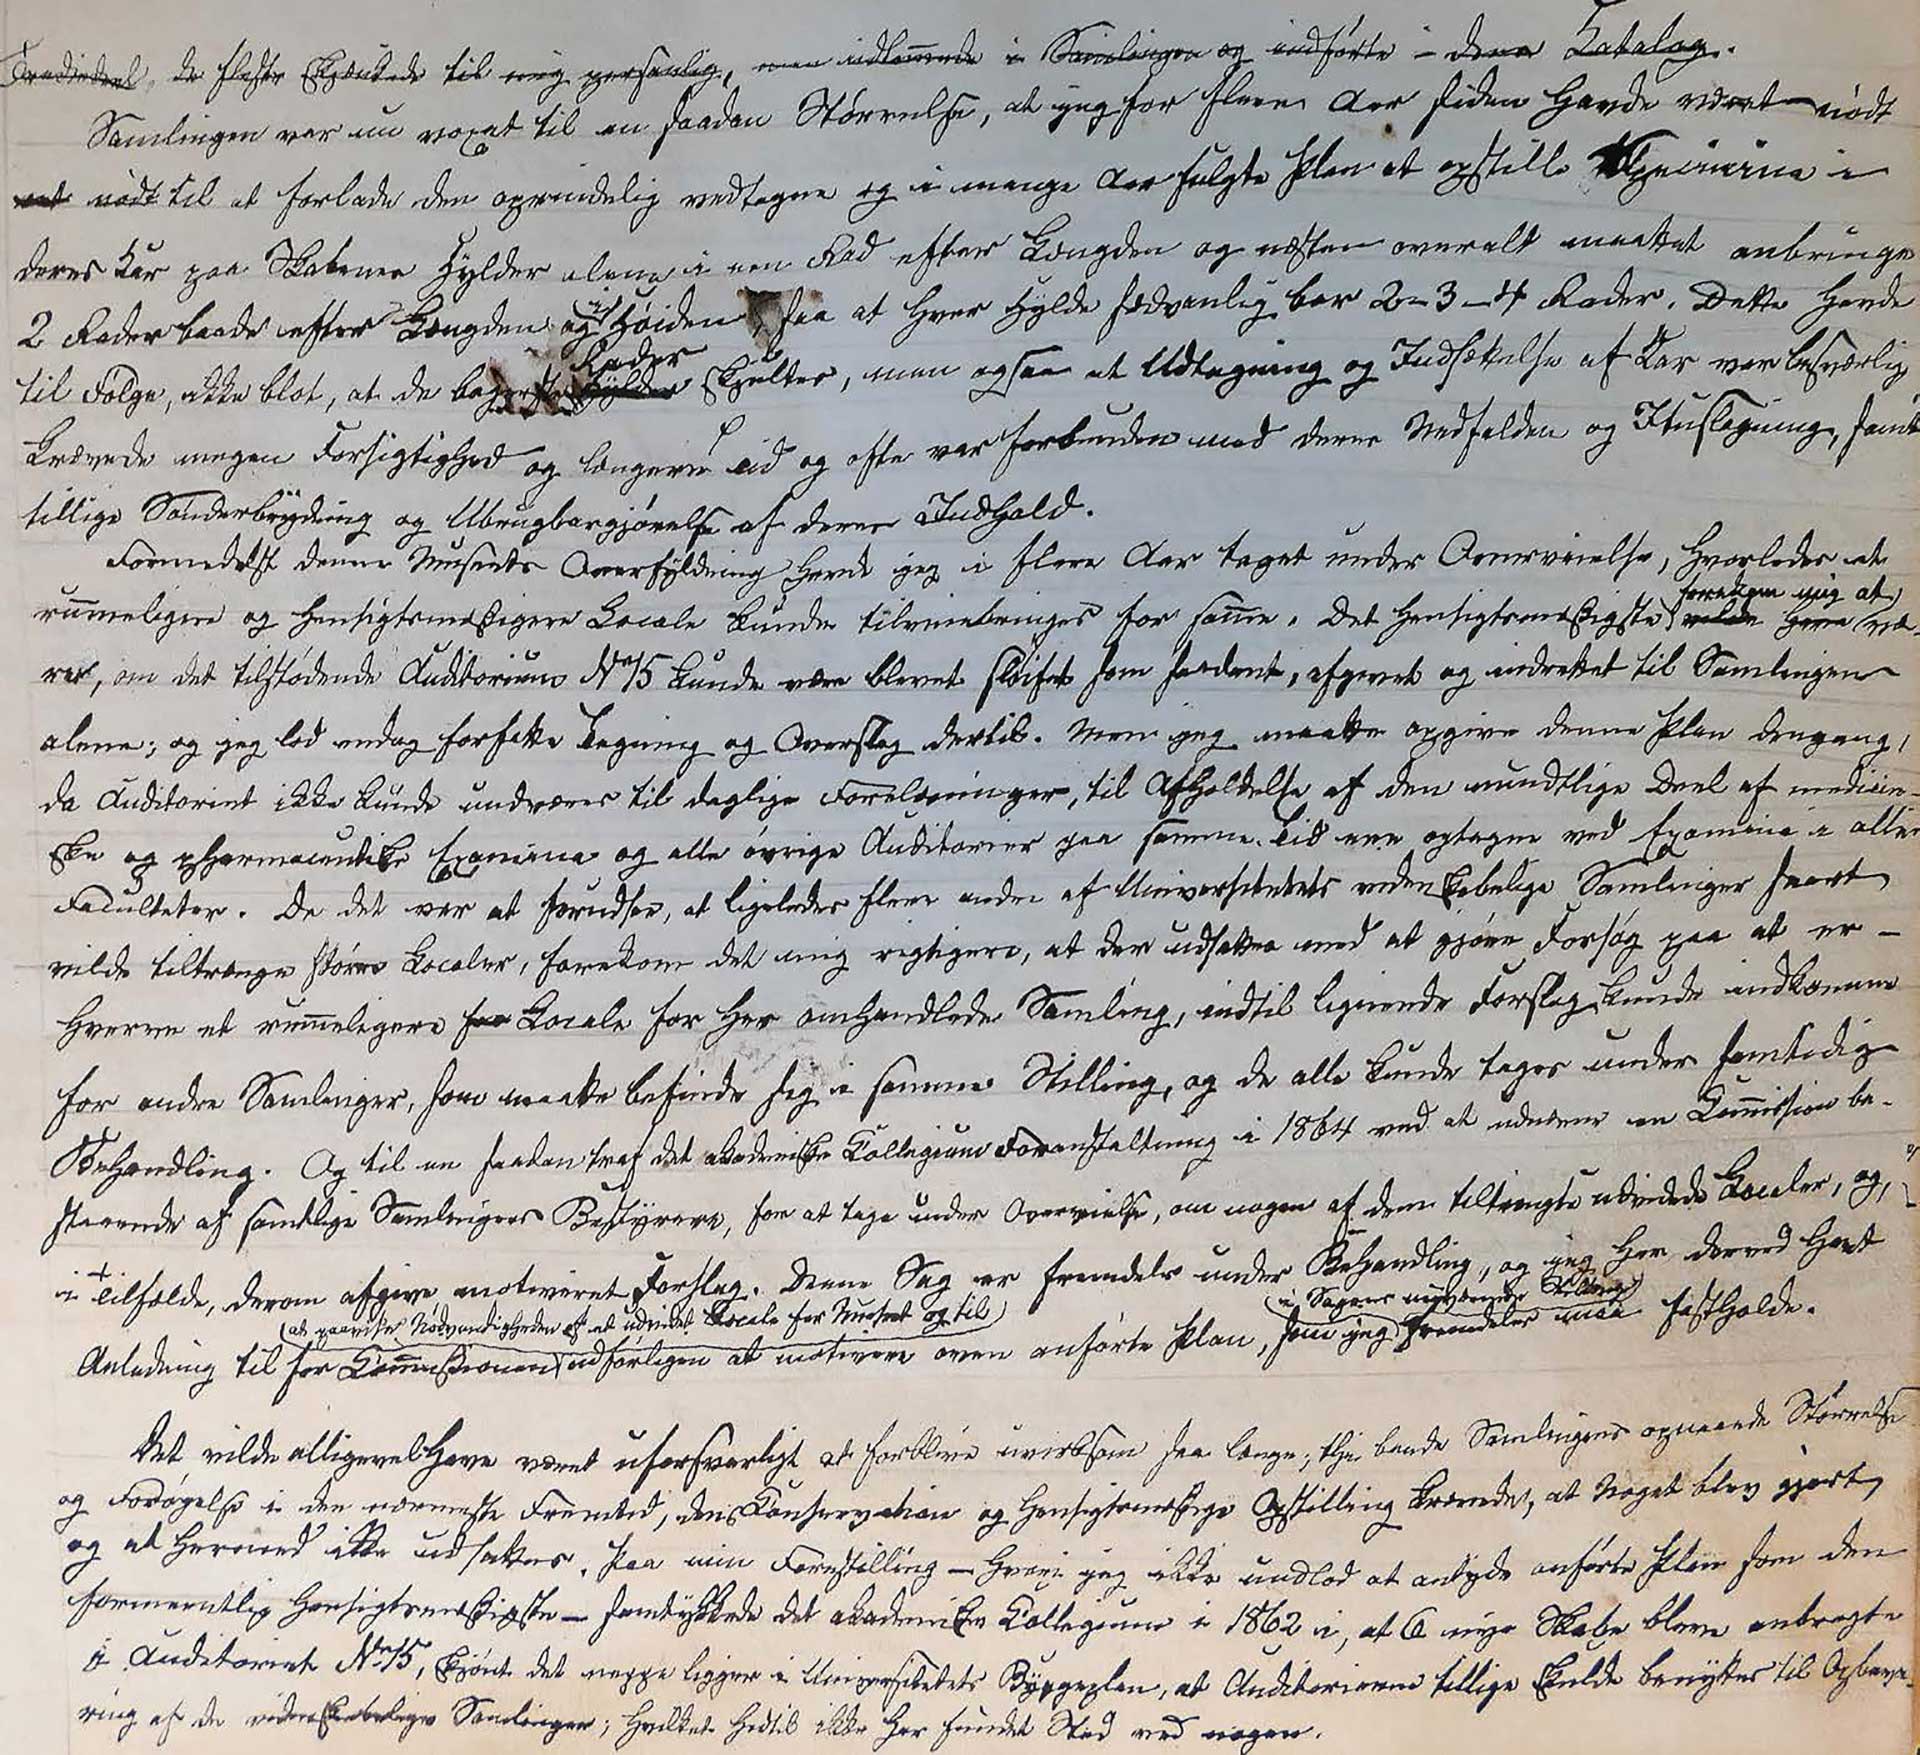 Trediedeel, de fleste skjænkede til mig personlig, men indlemmede i Samlingen og indførte i dens Catalog.
Samlingen var nu voxet til en saadan Størrelse, at jeg for flere Aar siden havde været nødt
nødt til at forlade den oprindelig vedtagne og i mange Aar fulgte Plan at opstille Specimina i
deres Kar paa Skabenes Hylder alene i een Rad efter Længden og næsten overalt maattet anbringe
2 Rader baade efter Længden og i Høiden, saa at hver Hylde sædvanlig bar 2–3–4 Rader. Dette havde
Rader
til Følge, ikke blot, at de bagerste Hylder skjultes, men ogsaa at Udtagning og Indsættelse af Kar var besværlig,
krævede megen Forsigtighed og længere Tid og ofte var forbunden med deres Nedfalden og Ituslagning, samt
tillige Sønderbrydning og Ubrugbargjørelse af deres Indhold.
Formedelst denne Museets Overfyldning havde jeg i flere Aar taget under Overveielse, hvorledes et
forekom mig at
rum̄eligere og hensigtsmæssigere Locale kunde tilveiebringes for sam̄e. Det hensigtsmæssigste vilde have væ-
ret, om det tilstødende Auditorium No 15 kunde være blevet sløifet som saadant, afgivet og indrettet til Samlingen
alene; og jeg lod endog forfatte Tegning og Overslag dertil. Men jeg maatte opgive denne Plan dengang,
da Auditoriet ikke kunde undværes til daglige Forelæsninger, til Afholdelse af den mundtlige Deel af medicin-
ske og pharmaceutiske Examina og alle øvrige Auditorier paa samme Tid ere optagne ved Examina i alle
Faculteter. Da det var at forudsee, at ligeledes flere andre af Universitetets videnskabelige Samlinger snart
vilde tiltrænge større Localer, forekom det mig rigtigere, at der udsattes med at gjøre Forsøg paa at er-
hverve et rum̄eligere for Locale for her omhandlede Samling, indtil lignende Forslag kunde indkomme
for andre Samlinger, som maatte befinde sig i samme Stilling, og de alle kunde tages under samtidig
Behandling. Og til en saadan traf det akademiske Collegium Foranstaltning i 1864 ved at udnævne en Com̄ission be-
staaende af samtlige Samlingers Bestyrere, for at tage under Overveielse, om nogen af dem tiltrængte udvidede Localer, og,
i + Tilfælde, derom afgive motiveret Forslag. Denne Sag er fremdeles under Behandling, og jeg har derved havt
(at paavise Nødvendigheden af et udvidet Locale for Museet og til) (i Sagens nuværende Stilling)
Anledning til for Com̄issionen udførligen at motivere oven anførte Plan, som jeg fremdeles maa fastholde.
Det vilde alligevel have været uforsvarligt at forblive uvirksom saa længe; thi baade Samlingens opnaaede Størrelse
og Forøgelse i den nærmeste Fremtid, dens Conservation og hensigtsmæssige Opstilling krævede, at Noget blev gjort,
og at herved ikke udsattes. Paa min Forestilling – hvori jeg ikke undlod at antyde anførte Plan som den
formeentlig hensigtsmæssigste – samtykkede det akademiske Collegium i 1862 i, at 6 nye Skabe bleve anbragte
i Auditoriet No 15, skjønt det neppe ligger i Universitetets Byggeplan, at Auditorierne tillige skulde benyttes til Opbeva-
ring af de videnskabelige Samlinger; hvilket hidtil ikke har fundet Sted ved nogen.